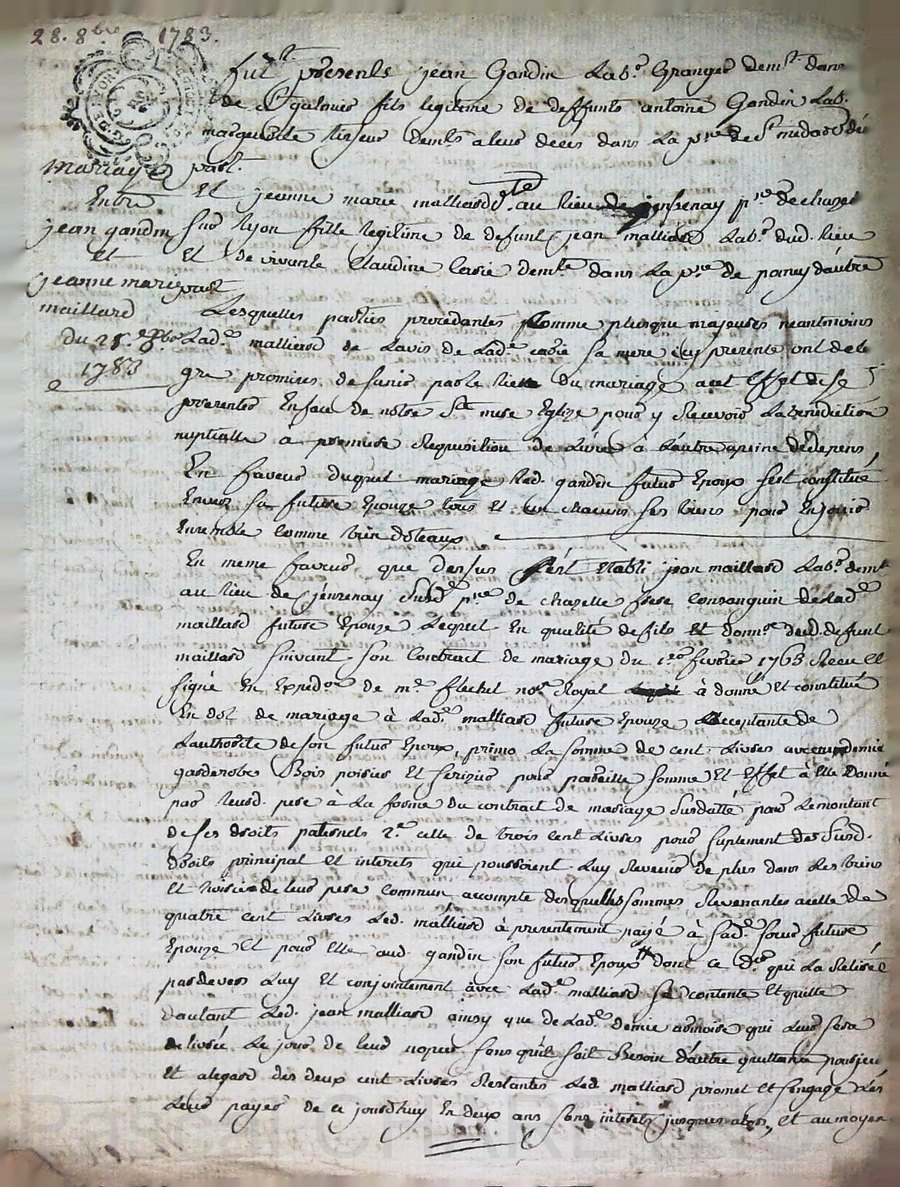 28. 8bre 1783.
furt presents jean Gandin Labr Granger demt dans
de fils legitime de deffunts antoine Gandin Labr
margueritte demts a leur deces dans La psse de St medard du
part.
mariage
Entre
jean gandin
et
jeanne marie
maillard
du 28e 8bre
1783
Et jeanne marie malliard au lieu de jenzenay psse de chapelle
sur fille legitime de defunt jean malliard Labr dud. lieu
Et de vivante Claudine demte dans La psse de d'autre
part
Lesquelles parties procedantes comme plusque majeures neantmoins
Lad. malliard de Lavis de Lad. sa mere icy presente ont de leur
gré promis de sunir par le lien du mariage a cet Effet de se
presenter En face de notre Ste mere Eglize pour y Recevoir La benediction
nuptialle a premiere Requisition de Lune à Lautre a peine de depens
En faveur duquel mariage Led. gandin futur Epoux sest constitué
Envers sa future Epouze tous et un chacuns ses biens pour En jouir
Ensemble comme bien doteaux
En meme faveur que dessus sest Etabli jean maillard Labr demt
au lieu de jenzenay susd. psse de chapelle frere consanguin de Lad.
maillard future Epouze Lequel En qualité de fils et donnre dud. defunt
maillard suivant son Contrait de mariage du fevrier 1763 Receu Et
signé En Expedon de me flechet nore Royal à donné Et constitué
En dot de mariage à Lad. malliard future Epouze acceptante de
Lauthorité de son futur Epoux, primo La somme de cent Livres avec une demie
garderobe Bois poirier Et serizier pour pareille somme Et Effet à Elle donné
par leurd. pere à La forme du contrait de mariage susdatté pour Le montant
de ses droits paternels 2e celle de trois cent Livres pour suplement de susd.
droits principal Et interets qui pourroient Luy Revenir de plus dans Les biens
Et hoirie de leur pere commun accompte desquelles sommes Revenantes acelle de
quatre cent Livres Led. malliard à presentement payé à sad. soeur future
Epouze Et pour Elle aud. gandin son futur Epoux dont ce dr qui La Retirée
pardevers Luy Et conjointement avec Lad. malliard se contente Et quitte
d'autant Led. jean malliard ainsy que de Lad. demie armoire qui Leur sera
delivrée Le jour de leur nopces sans quil soit Besoin d'autre quittance
Et alegard des deux cent Livres Restantes Led. malliard promet Et sengage Les
Leur payer de ce jourdhuy En deux ans sans interets jusques alors, Et au moyen